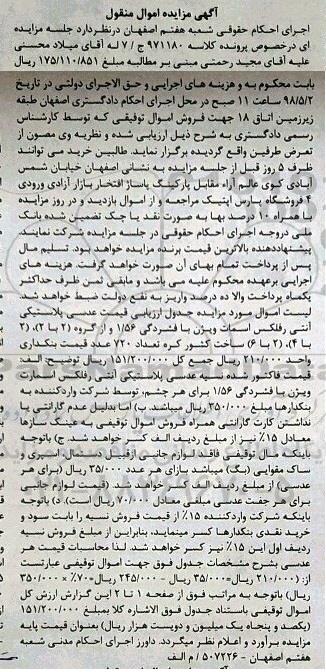 آگهی مزایده اموال منقول
اجرای احکام حقوقی شعبه هفتم اصفهان درنظردارد جلسه مزایده
ای درخصوص پرونده کلاسه ۹۷۱۱۸۰ ج / ۷ له آقای میلاد محسنی
علیه آقای مجید رحمتی مبنی بر مطالبه مبلغ ۱۷۵/۱۱۰/۸۵۱ ریال
بابت محکوم به و هزینه های اجرایی و حق الاجرای دولتی در تاریخ
۹۸/۵/۲ ساعت ۱۱ صبح در محل اجرای احکام دادگستری اصفهان طبقه
زیرزمین اتاق ۱۸ جهت فروش اموال توقیفی که توسط کارشناس
رسمی دادگستری به شرح ذیل ارزیابی شده و نظریه وی مصون از
تعرض طرفین واقع گردیده برگزار نماید. طالبین خرید می توانند
ظرف ۵ روز قبل از جلسه مزایده به نشانی اصفهان خیابان شمس
آبادی کوی عالم آراء مقابل پارکینگ پاساژ افتخار بازار آزادی ورودی
۴ فروشگاه پارس اپتیک مراجعه و از اموال بازدید و در روز مزایده
با همراه ۱۰ درصد بها به صورت نقد یا چک تضمین شده بانک
ملی دروجه اجرای احکام حقوقی در جلسه مزایده شرکت نمایند
پیشنهاددهنده بالاترین قیمت برنده مزایده خواهد بود. تسلیم مال
پس از پرداخت تمام بهای آن صورت خواهد گرفت. هزینه های
اجرایی برعهده محکوم علیه می باشد و مابقی ثمن ظرف حداکثر
یکماه پرداخت والا ده درصد واریز به نفع دولت ضبط خواهد شد.
لیست اموال مورد مزایده جدول ارزیابی قیمت عدسی پلاستیکی
آنتی رفلکس اسمات ویژن با فشردگی ۱/۵۶ و از گروه (۲ با ۲)، (۲
با ۴)، (۲ با ۶) ساخت کشور کره تعداد ۷۲۰ عدد قیمت بنکداری
واحد ۲۱۰/۰۰۰ ریال جمع کل ۱۵۱/۲۰۰/۰۰۰ ریال توضیح: الف
قیمت فاکتور شده نسیه عدسی پلاستیکی آنتی رفلکس اسمارت
ویژن با فشردگی ۱/۵۶ برای هر چشم، توسط شرکت واردکننده به
بنکدارها مبلغ ۳۵۰/۰۰۰ ریال میباشد ب) اما بدلیل عدم گارانتی یا
نداشتن کارت گارانتی همراه فروش اموال توقیفی به عینک سازها
معادل ۱۵٪ نیز از مبلغ ردیف الف کسر خواهد شد. ج) باتوجه
باینکه مال توقیفی فاقد لوازم جانبی ازقبیل دستمال، اسپری و
ساک مقوایی (بگ) میباشد بازای هر عدد ۳۵/۰۰۰ ریال (برای هر
عدسی) از مبلغ ردیف الف کسر خواهد شد. (قیمت لوازم جانبی
برای هر جفت عدسی مبلغی معادل ۷۰/۰۰۰ ریال است). د) باتوجه
باینکه شرکت واردکننده ۱۵٪ از قیمت فروش نسیه را بابت سود و
خرید نقدی بنکدارها کسر مینماید، بنابراین از مبلغ فروش نسیه
ردیف اول این ۱۵٪ نیز کسر خواهد شد. لذا محاسبات قیمت هر
عدسی بشرح مشخصات جدول فوق جهت اموال توقیفی عبارتست
از: (۲۱۰/۰۰۰ ریال=۳۵/۰۰۰ ریال – ۲۴۵/۰۰۰ ریال=۷۰٪ × ۳۵۰/۰۰۰
ریال) باتوجه به مراتب فوق از صفحه ۱ تا ۲ این گزارش ارزش کل
اموال توقیفی باستناد جدول فوق الاشاره کلا بمبلغ ۱۵۱/۲۰۰/۰۰۰
(یکصد و پنجاه یک میلیون و دویست هزار ریال) بعنوان قیمت پایه
مزایده برآورد و اعلام نظر میگردد. داورز اجرای احکام مدنی شعبه
هفتم اصفهان – ۵۰۷۲۲۶ / م الف